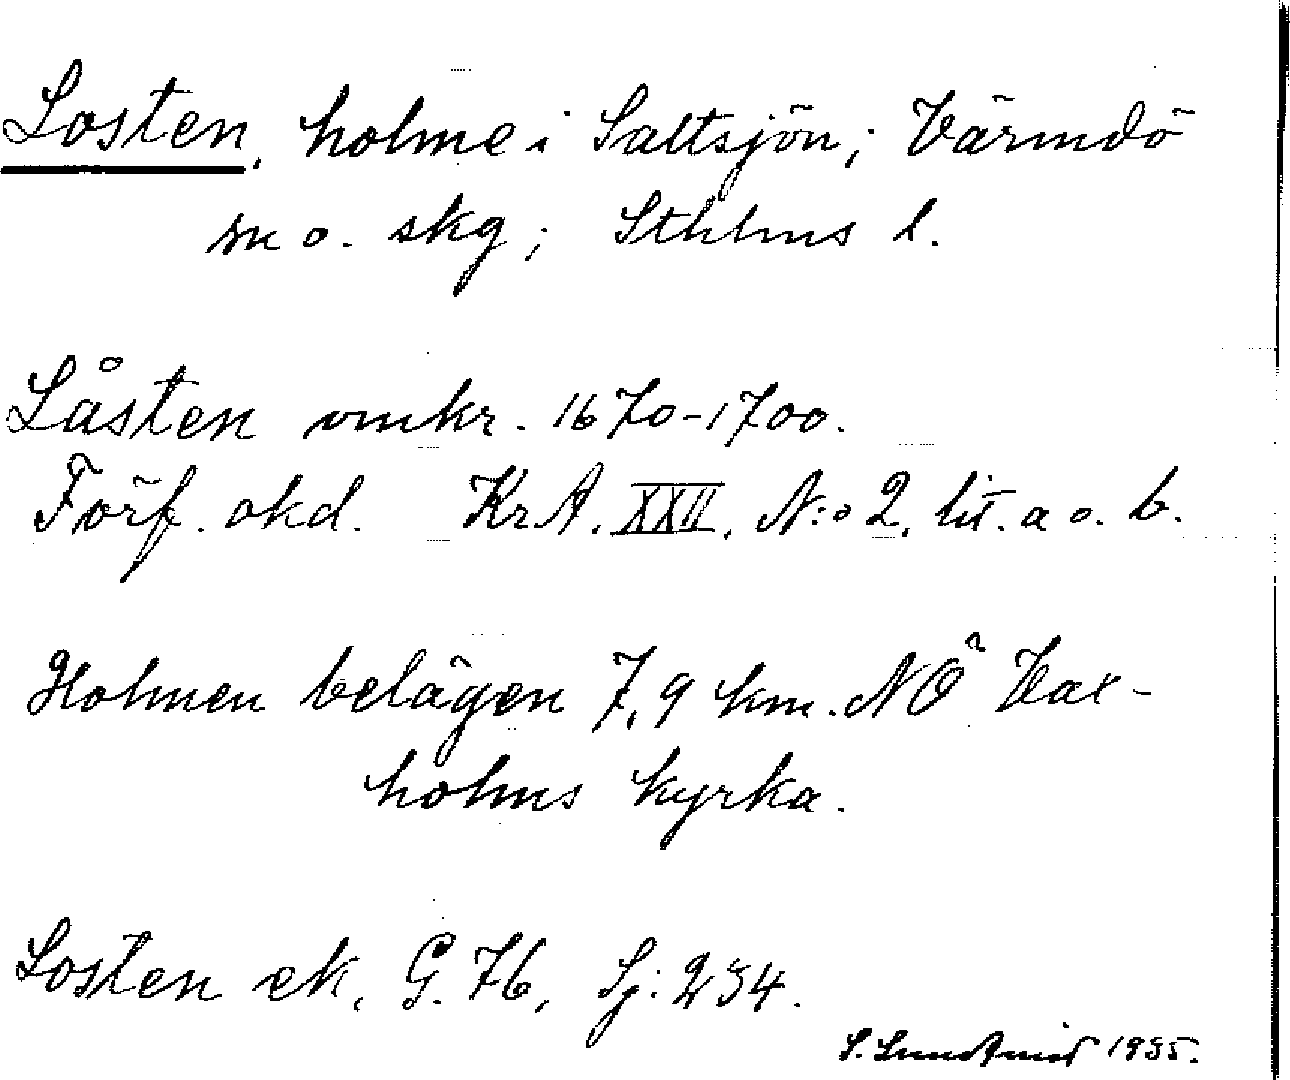 Losten, holme i Saltsjön; Värmdö
sn o. skg; Sthlms l.
Låsten omkr. 1670-1700.
Förf. okd. Kr.A. XXII, N:o 2, lit. a o. b.
Holmen belägen 7,9 km. NÖ Vax-
holms kyrka.
Losten ek, G. 76, Sj: 234.
S. Lundqvist 1935.